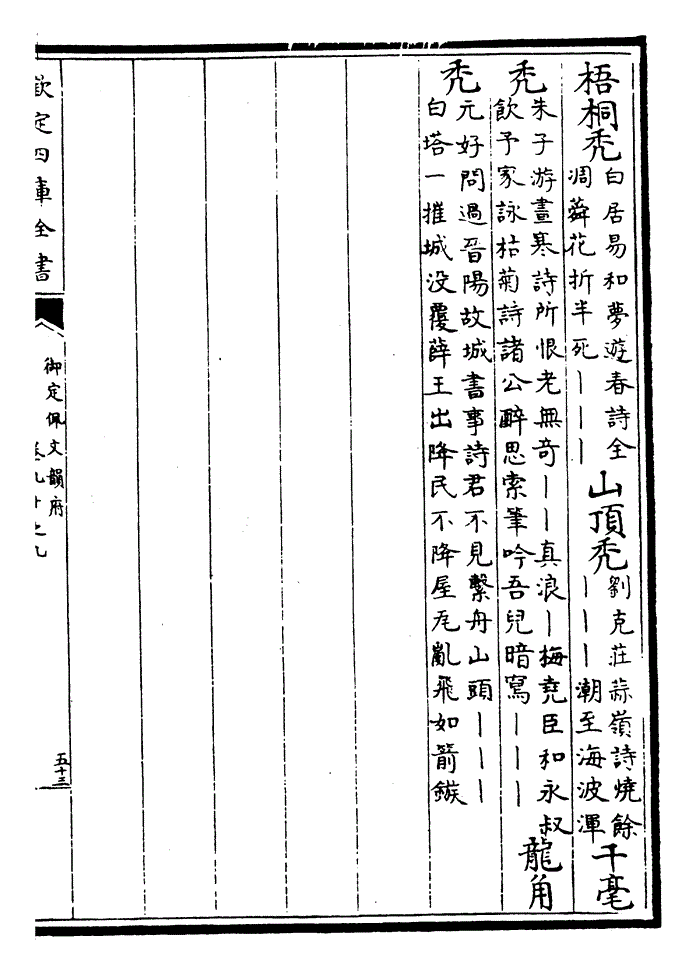 梧桐禿
白居易和夢遊春詩全
凋蕣花折半死丨丨丨
山頂禿
劉克莊蒜嶺詩燒餘
丨丨丨潮至海波渾
千毫
禿
朱子游晝寒詩所恨老無奇丨丨真浪丨梅堯臣和永叔
飲予家詠枯菊詩諸公醉思索筆吟吾兒暗寫丨丨丨
龍角
禿
元好問過晉陽故城書事詩君不見繫舟山頭丨丨丨
白塔一摧城没覆薛王出降民不降屋瓦亂飛如箭鏃
欽定四庫全書
御定佩文韻府
卷九十之九
五十三